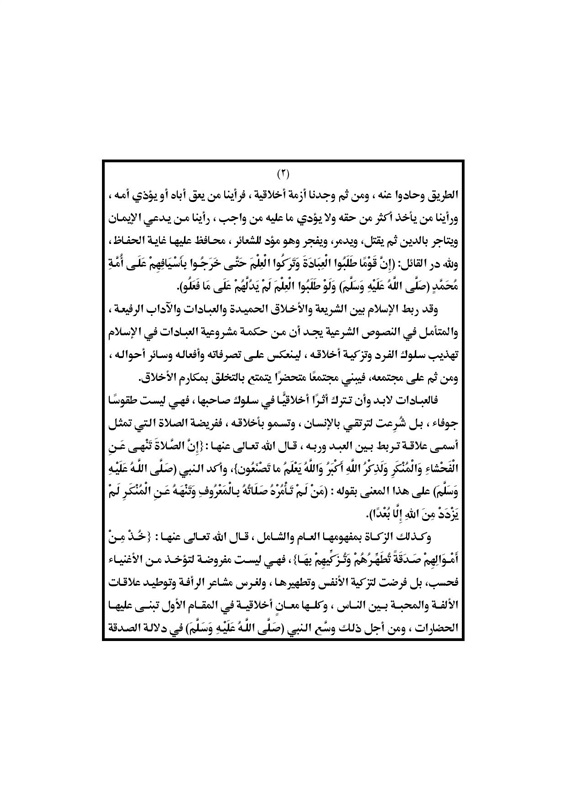 (٢)
الطريق وحادوا عنه ، ومن ثم وجدنا أزمة أخلاقية ، فرأينا من يعق أباه أو يؤذي أمه ،
ورأينا من يأخذ أكثر من حقه ولا يؤدي ما عليه من واجب ، رأينا من يدعي الإيمان
ويتاجر بالدين ثم يقتل، ويدمر، ويفجر وهو مؤد للشعائر ، محافظ عليها غاية الحفاظ،
ولله در القائل: (إِنَّ قَوْمًا طَلَبُوا الْعِبَادَةَ وَتَرَكُوا الْعِلْمَ حَتَّى خَرَجُوا بِأَسْيَافِهِمْ عَلَى أُمَّةِ
مُحَمَّدٍ (صَلَّى اللَّهُ عَلَيْهِ وَسَلَّمَ) وَلَوْ طَلَبُوا الْعِلْمَ لَمْ يَدُلَّهُمْ عَلَى مَا فَعَلُو).
وقد ربط الإسلام بين الشريعة والأخلاق الحميدة والعبادات والآداب الرفيعة ،
والمتأمل في النصوص الشرعية يجد أن من حكمة مشروعية العبادات في الإسلام
تهذيب سلوك الفرد وتزكية أخلاقه ، لينعكس على تصرفاته وأفعاله وسائر أحواله ،
ومن ثم على مجتمعه، فيبني مجتمعًا متحضرًا يتمتع بالتخلق بمكارم الأخلاق.
فالعبادات لابد وأن تترك أثرًا أخلاقيًّا في سلوك صاحبها ، فهي ليست طقوسًا
جوفاء ، بل شُرعت لترتقي بالإنسان ، وتسمو بأخلاقه ، ففريضة الصلاة التي تمثل
أسمى علاقة تربط بين العبد وربه ، قال الله تعالى عنها : {إِنَّ الصَّلاةَ تَنْهى عَنِ
الْفَحْشاءِ وَالْمُنْكَرِ وَلَذِكْرُ اللَّهِ أَكْبَرُ وَاللَّهُ يَعْلَمُ ما تَصْنَعُون}، وأكد النبي (صَلَّى اللَّهُ عَلَيْهِ
وَسَلَّمَ) على هذا المعنى بقوله : (مَنْ لَمْ تَأْمُرْهُ صَلَاتُهُ بِالْمَعْرُوفِ وَتَنْهَهُ عَنِ الْمُنْكَرِ لَمْ
يَزْدَدْ مِنَ اللهِ إِلَّا بُعْدًا).
وكذلك الزكاة بمفهومها العام والشامل ، قال الله تعالى عنها : {خُذْ مِنْ
أَمْوَالِهِمْ صَدَقَةً تُطَهِّرُهُمْ وَتُزَكِّيهِمْ بِهَا}، فهي ليست مفروضة لتؤخذ من الأغنياء
فحسب، بل فرضت لتزكية الأنفس وتطهيرها ، ولغرس مشاعر الرأفة وتوطيد علاقات
الألفة والمحبة بين الناس ، وكلها معانٍ أخلاقية في المقام الأول تبنى عليها
الحضارات ، ومن أجل ذلك وسَّع النبي (صَلَّى اللَّهُ عَلَيْهِ وَسَلَّمَ) في دلالة الصدقة